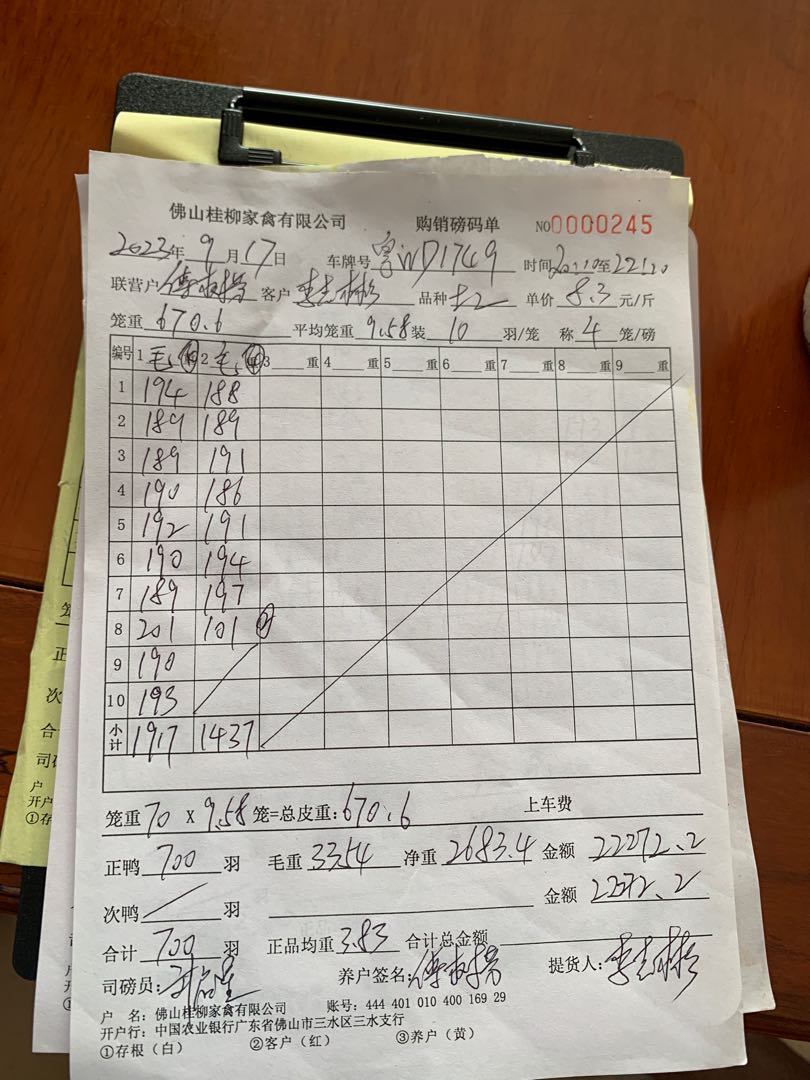 佛山桂柳家禽有限公司 购销磅码单 NO0000245
2023年9月17日 车牌号粤WD1749 时间 至
联营户 客户李志彬 品种土2 单价8.3元/斤
笼重670.6 平均笼重9.58装10羽/笼 称4笼/磅
编号 1毛 重 2毛 重 3 重 4 重 5 重 6 重 7 重 8 重 9 重
1 194 188
2 189 189
3 189 191
4 190 186
5 192 191
6 190 194
7 189 197
8 201 101
9 190
10 193
小计 1917 1437
笼重70X9.58笼=总皮重:670.6 上车费
正鸭700羽 毛重3354 净重2683.4 金额22272.2
次鸭 羽 金额22272.2
合计700羽 正品均重3.83 合计总金额
司磅员: 养户签名: 提货人:李志彬
户 名:佛山桂柳家禽有限公司 账号:444 401 010 400 169 29
开户行:中国农业银行广东省佛山市三水区三水支行
①存根(白) ②客户(红) ③养户(黄)